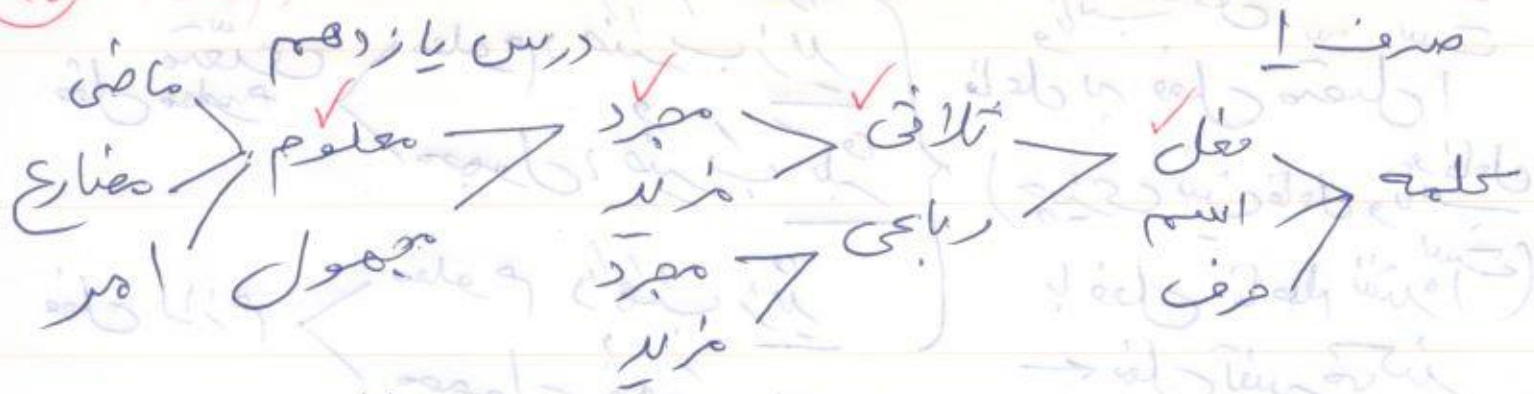 صرف ۱
درس یازدهم
کلمه
فعل
اسم
حرف
ثلاثی
رباعی
مجرد
مزید
مجرد
مزید
معلوم
مجهول
ماضی
مضارع
امر